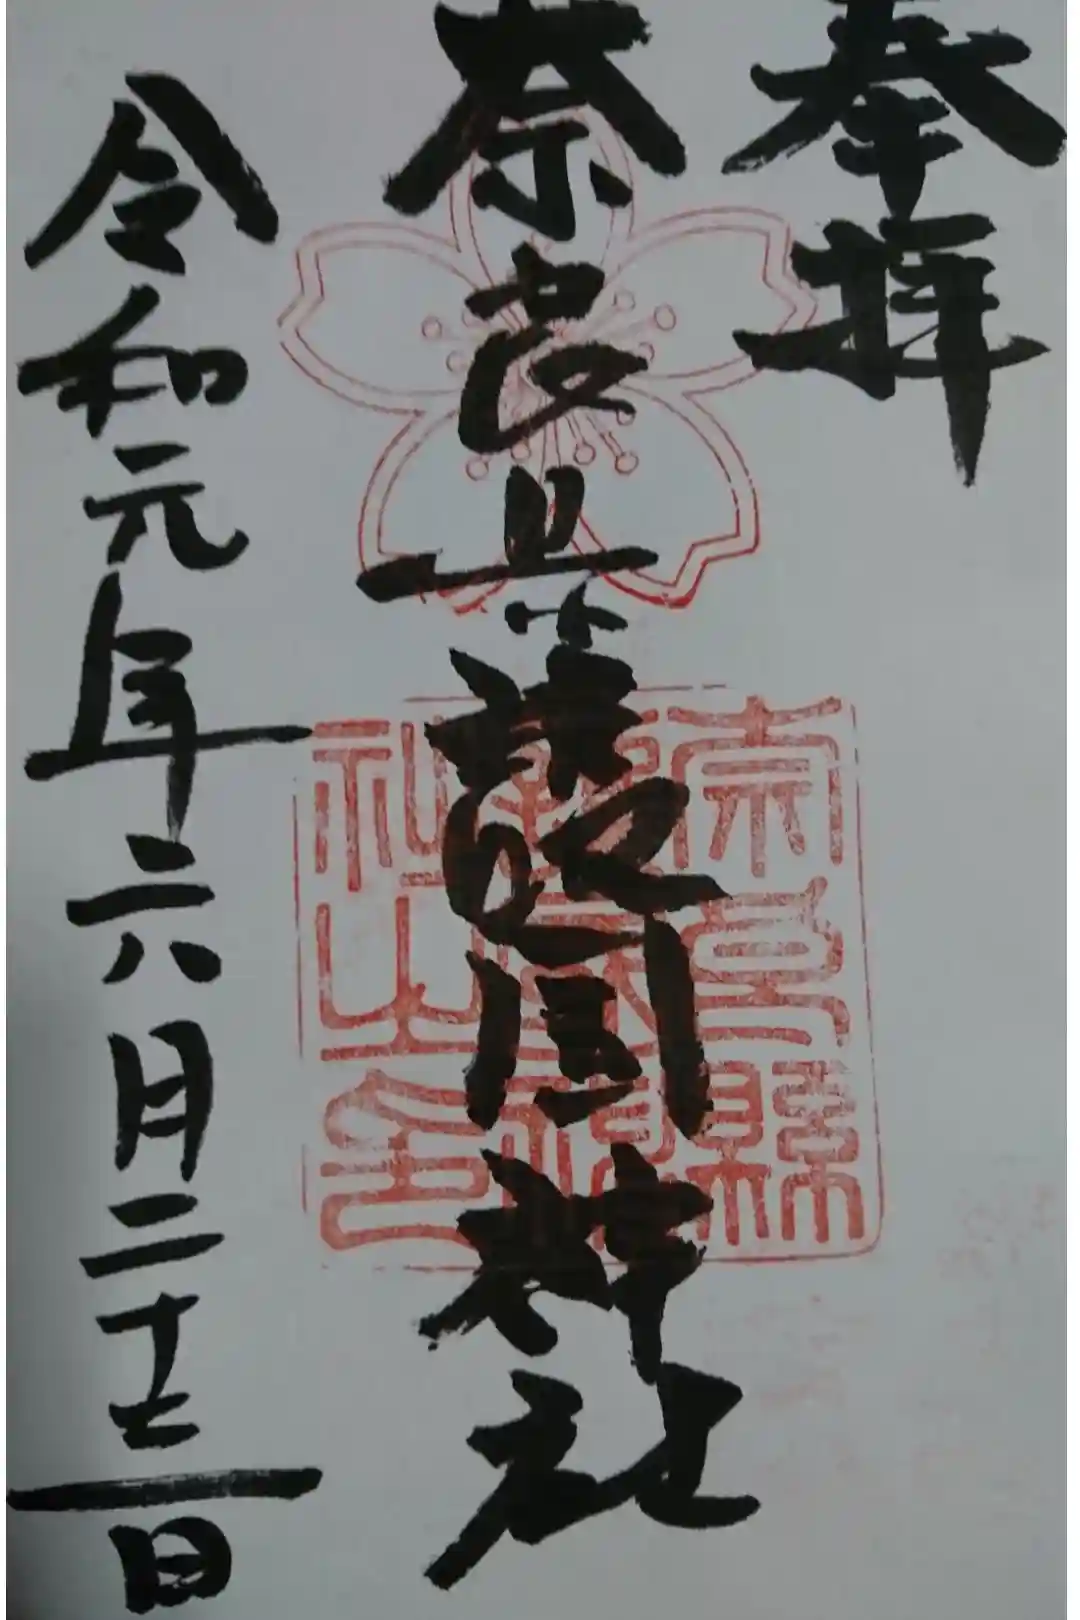 奉拝
奈良県護国神社
令和元年六月二十三日
奈良縣
護國神
社之印